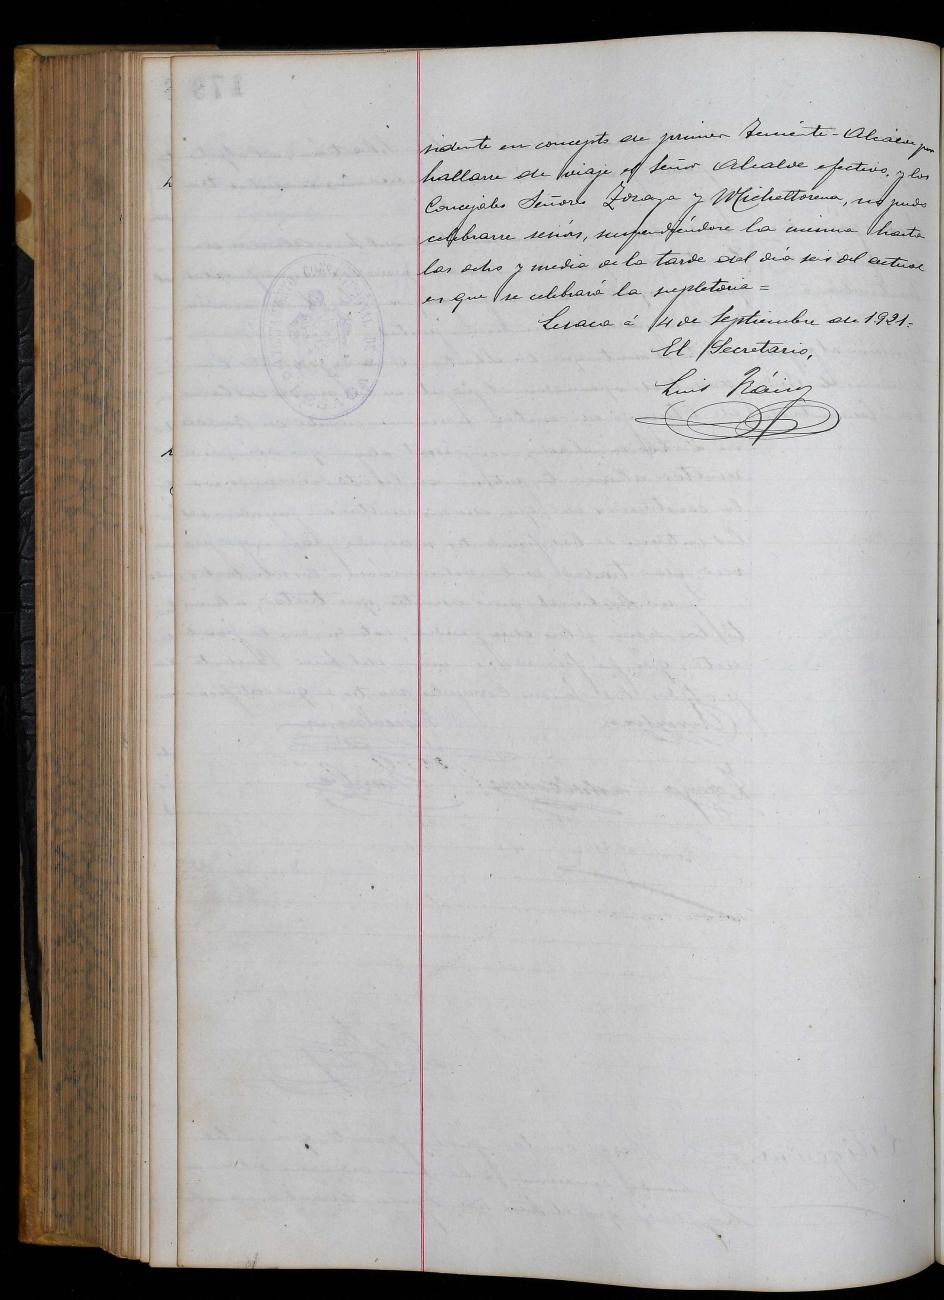 sidente en concepto de primer Teniente-Alcalde por
hallarse de viaje el Señor Alcalde efectivo, y los
Concejales Señores Zozaya y Michettorena, no pudo
celebrarse sesión, suspendiéndose la misma hasta
las ocho y media de la tarde del día seis del actual
en que se celebrará la supletoria =
Lesaca á 4 de Septiembre de 1921.=
El Secretario,
Luis